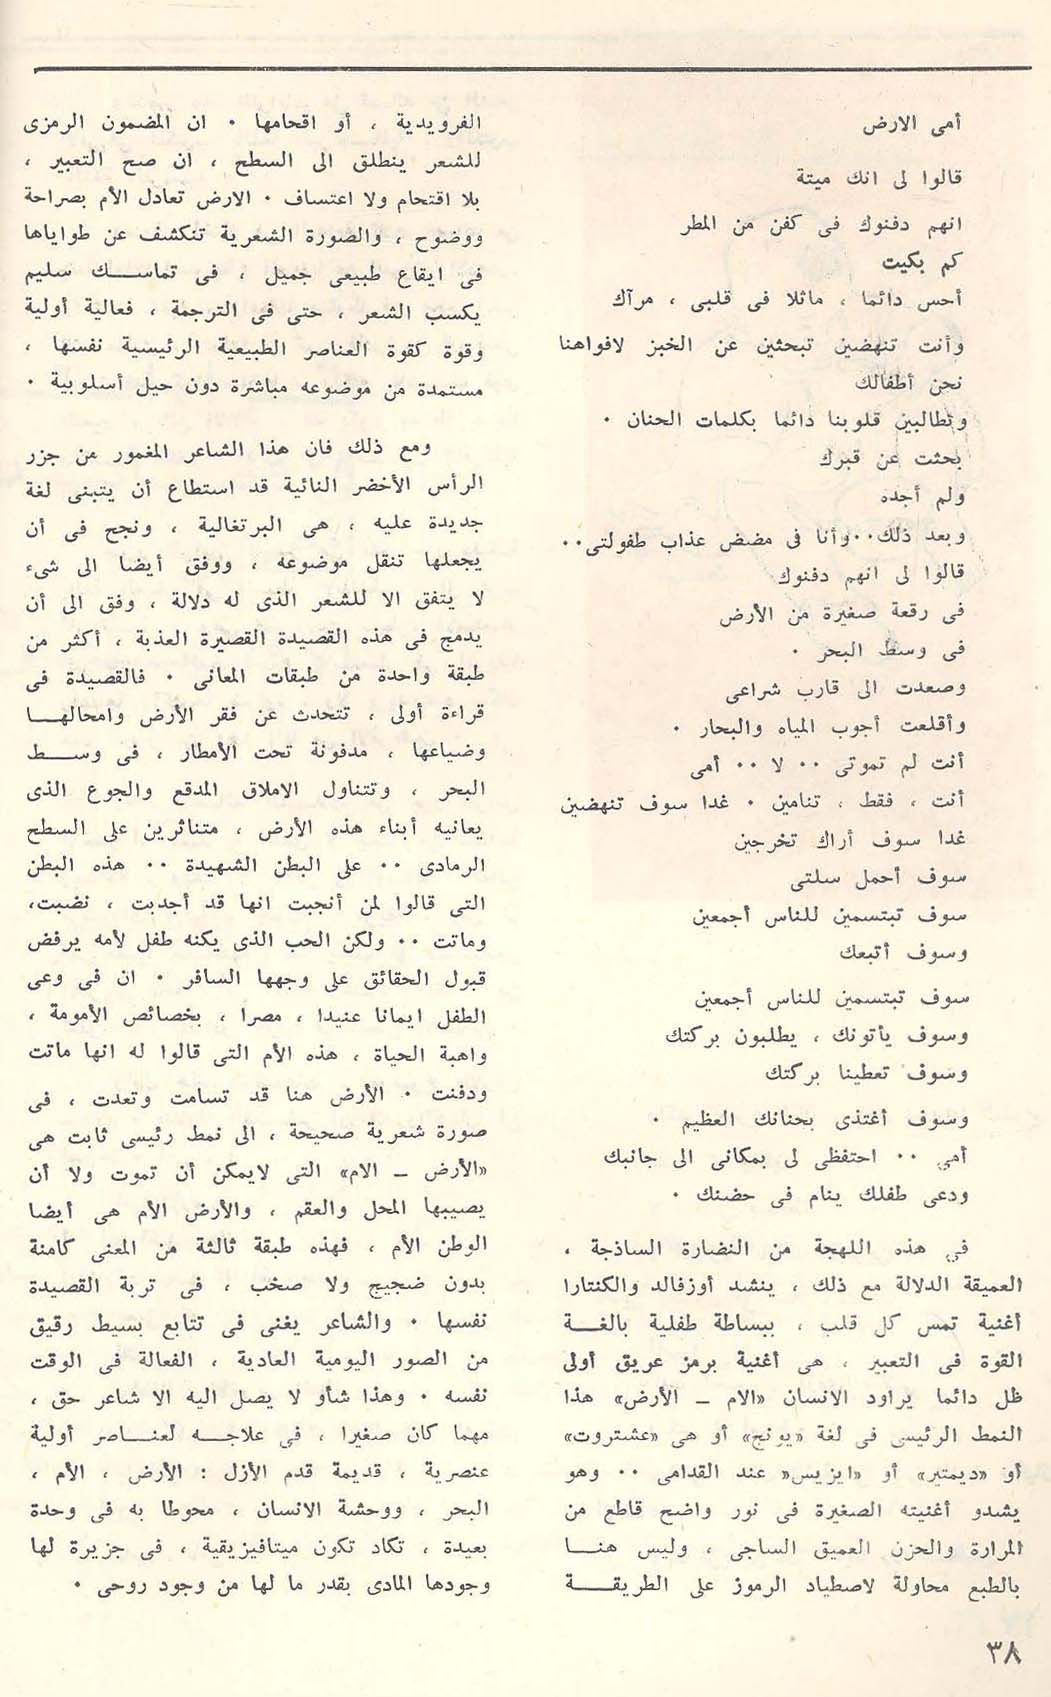 أمى الارض
قالوا لى انك ميتة
انهم دفنوك فى كفن من المطر
كم بكيت
أحس دائما ، ماثلا فى قلبى ، مرآك
وأنت تنهضين تبحثين عن الخبز لافواهنا
نحن أطفالك
وتطالبين قلوبنا دائما بكلمات الحنان ٠
بحثت عن قبرك
ولم أجده
وبعد ذلك٠٠وأنا فى مضض عذاب طفولتى٠٠
قالوا لى انهم دفنوك
فى رقعة صغيرة من الأرض
فى وسط البحر ٠
وصعدت الى قارب شراعى
وأقلعت أجوب المياه والبحار ٠
أنت لم تموتى ٠٠ لا ٠٠ أمى
أنت ، فقط ، تنامين ٠ غدا سوف تنهضين
غدا سوف أراك تخرجين
سوف أحمل سلتى
سوف تبتسمين للناس أجمعين
وسوف أتبعك
سوف تبتسمين للناس أجمعين
وسوف يأتونك ، يطلبون بركتك
وسوف تعطينا بركتك
وسوف أغتذى بحنانك العظيم ٠
أمى ٠٠ احتفظى لى بمكانى الى جانبك
ودعى طفلك ينام فى حضنك ٠
فى هذه اللهجة من النضارة الساذجة ،
العميقة الدلالة مع ذلك ، ينشد أوزفالد والكنتارا
أغنية تمس كل قلب ، ببساطة طفلية بالغـــة
القوة فى التعبير ، هى أغنية برمز عريق أولى
ظل دائما يراود الانسان «الام ـ الأرض» هذا
النمط الرئيسى فى لغة «يونج» أو هى «عشتروت»
أو «ديمتير» أو «ايزيس» عند القدامى ٠٠ وهو
يشدو أغنيته الصغيرة فى نور واضح قاطع من
المرارة والحزن العميق الساجى ، وليس هنـــا
بالطبع محاولة لاصطياد الرموز على الطريقـــة
الفرويدية ، أو اقحامها ٠ ان المضمون الرمزى
للشعر ينطلق الى السطح ، ان صح التعبير ،
بلا اقتحام ولا اعتساف ٠ الارض تعادل الأم بصراحة
ووضوح ، والصورة الشعرية تنكشف عن طواياها
فى ايقاع طبيعى جميل ، فى تماســـك سليم
يكسب الشعر ، حتى فى الترجمة ، فعالية أولية
وقوة كقوة العناصر الطبيعية الرئيسية نفسها ،
مستمدة من موضوعه مباشرة دون حيل أسلوبية ٠
ومع ذلك فان هذا الشاعر المغمور من جزر
الرأس الأخضر النائية قد استطاع أن يتبنى لغة
جديدة عليه ، هى البرتغالية ، ونجح فى أن
يجعلها تنقل موضوعه ، ووفق أيضا الى شىء
لا يتفق الا للشعر الذى له دلالة ، وفق الى أن
يدمج فى هذه القصيدة القصيرة العذبة ، أكثر من
طبقة واحدة من طبقات المعانى ٠ فالقصيدة فى
قراءة أولى ، تتحدث عن فقر الأرض وامحالهـــا
وضياعها ، مدفونة تحت الأمطار ، فى وســـط
البحر ، وتتناول الاملاق المدقع والجوع الذى
يعانيه أبناء هذه الأرض ، متناثرين على السطح
الرمادى ٠٠ على البطن الشهيدة ٠٠ هذه البطن
التى قالوا لمن أنجبت انها قد أجدبت ، نضبت،
وماتت ٠٠ ولكن الحب الذى يكنه طفل لأمه يرفض
قبول الحقائق على وجهها السافر ٠ ان فى وعى
الطفل ايمانا عنيدا ، مصرا ، بخصائص الأمومة ،
واهبة الحياة ، هذه الأم التى قالوا له انها ماتت
ودفنت ٠ الأرض هنا قد تسامت وتعدت ، فى
صورة شعرية صحيحة ، الى نمط رئيسى ثابت هى
«الأرض ـ الام» التى لايمكن أن تموت ولا أن
يصيبها المحل والعقم ، والأرض الأم هى أيضا
الوطن الأم ، فهذه طبقة ثالثة من المعنى كامنة
بدون ضجيج ولا صخب ، فى تربة القصيدة
نفسها ٠ والشاعر يغنى فى تتابع بسيط رقيق
من الصور اليومية العادية ، الفعالة فى الوقت
نفسه ٠ وهذا شأو لا يصل اليه الا شاعر حق ،
مهما كان صغيرا ، فى علاجـــه لعنـــاصر أولية
عنصرية ، قديمة قدم الأزل : الأرض ، الأم ،
البحر ، ووحشة الانسان ، محوطا به فى وحدة
بعيدة ، تكاد تكون ميتافيزيقية ، فى جزيرة لها
وجودها المادى بقدر ما لها من وجود روحى ٠
٣٨